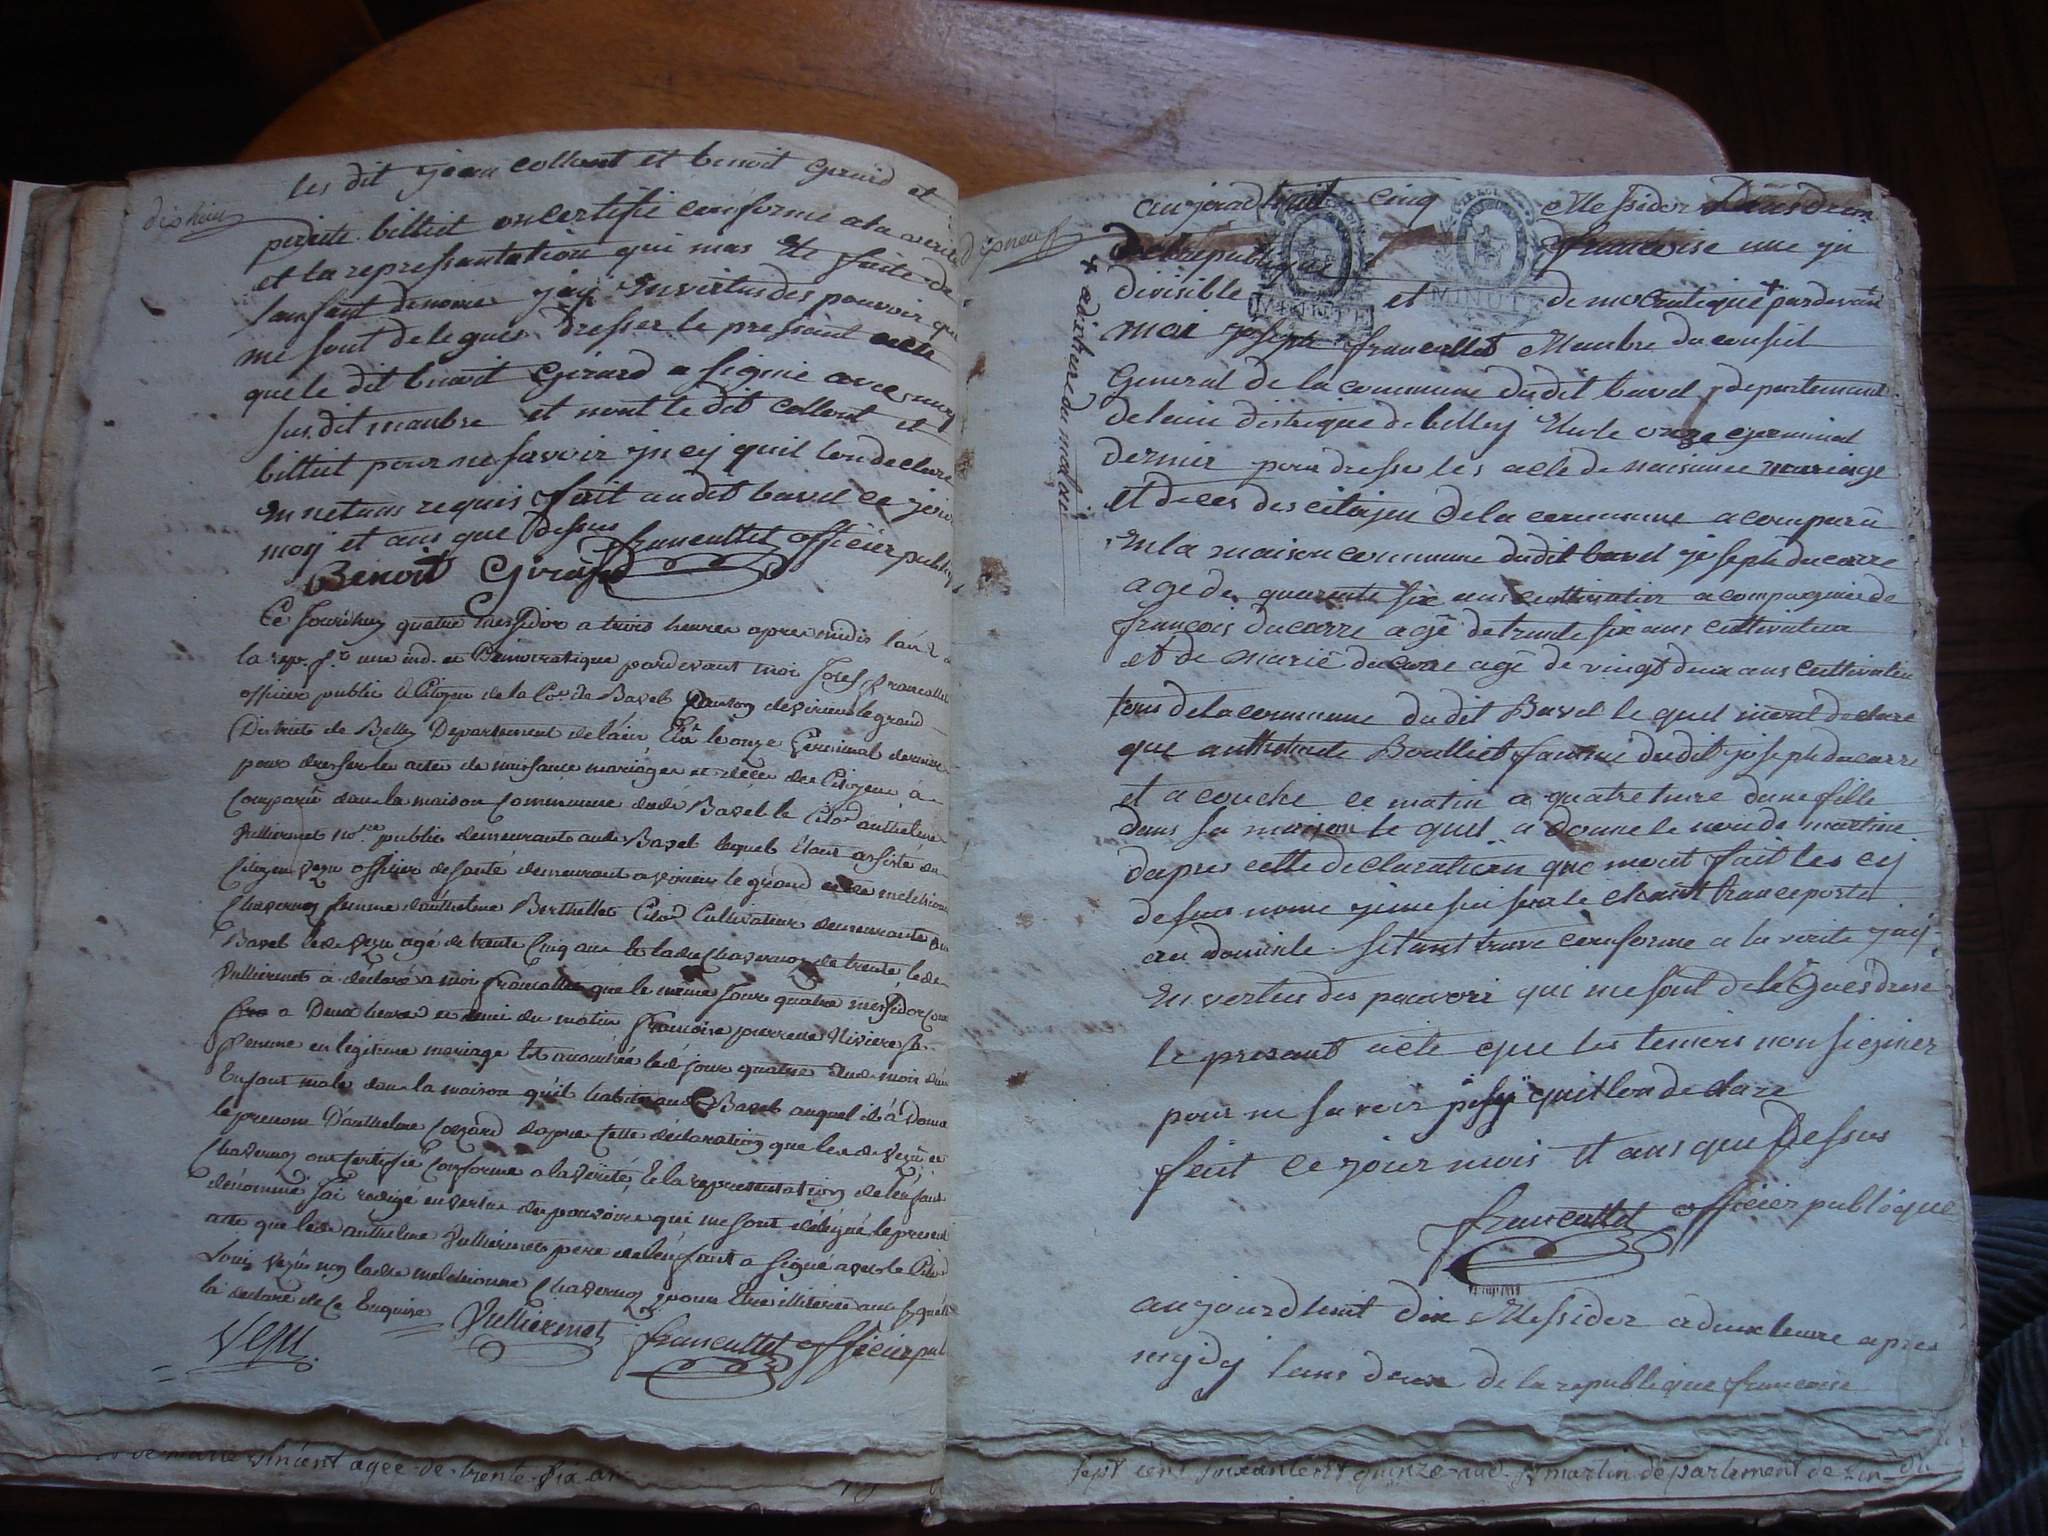 dixhuit
les dit jean collont et benoit Girard et
perrette billiet on certifie conforme a la verite
et la representation qui mas ete faite de
lanfant denomer jay En virtus des pouvoir qui
me sont delegues dresser le pressant acte
que le dit benoit Girard a signie avec moy
susdit manbre et nont le dit collont et
billiet pour ne savoir jn cy quil lon declare
En netans requis fait audit bavel ce jour
moy et ans que dessus francallet officier public
Benoit Girard
Ce Jourdhuy quatre messidor a trois heures apres midis l'an 2 d
la rep. f. une ind. et Democratique pardevant moi Josef francallet
officier public & Citoyen de la Co. de Bavel Canton de virieu le grand
District de Belley Departement de l'ain Elu le onze Germinal dernier
pour dresser les actes de naissance mariages et décès des Citoyens à
Comparu dans la maison Commune dudi Bavel le Cito. anthelme
Vulliermet no.re public demeurant aud. Bavel lequel étant assisté du
Citoyen vezu officier de santé demeurant a virieu le grand et de melchionne
Chavernoz femme d'anthelme Berthellet Cito. Cultivateur demeurante au
Bavel led. vezu agé de trente Cinq ans et lade Chavernoz de trente led.
Vulliermet à déclaré a moi francallet que le même jour quatre messidor
a Deux heures et demi du matin françoise pierrette Riviere sa
femme en legitime mariage est accouchée led. jour quatre dud. mois d'un
Enfant male dans la maison qu'il habite aud. Bavel auquel il à Donné
le prenom D'anthelme d'apres Cette déclaration que led. Vezu et
Chavernoz ont Certifié Conforme a la vérité, & la representation de l'enfant
dénommé J'ai redigé en vertu des pouvoirs qui me sont délégué le present
acte que led. anthelme Vulliermet pere de l'enfant a signé avec le Cito.
Louis Vezu non lade melchionne Chavernoz pour être illiterée
la declaré de ce Enquise Vulliermet
vezu francallet officier pub
de marie vincent agee de trente six an
dixneuf
aujourdhuit cinq Messidor Lans deux
de la republique francoise une jn
divisible et de mocratique + pardevant
MINUTE MINUTE
+ a dix heure du matin
moi joseph francallet Manbre du consil
General de la commune dudit bavel departement
de lain distrique de belley Elu le onze Germinal
dernier pour dresse les acte de naisance mariage
et deces des citoyen de la commune a comparu
En la maison commune dudit bavel joseph ducarre
age de quarente six ans cultivateur acompagnier de
francois ducarre agé de trente six ans cultivateur
et de marie ducarre agé de vingt deux ans cultivateur
tous de la commune du dit Bavel le quel mont declare
que anthelmete Boulliet famme dudit joseph ducarre
et a couche ce matin a quatre heure dune fille
dans sa maison le quel a donne le non de martine
dapres cette declaration que mont fait les cy
desus nome je me sui sur le chant transporte
au domicile setant trouve conforme a la verite jay
En vertus des pouvoir qui me sont delégués dresse
le presant acte que les temoins non signier
pour ne savoir jn cy quil lon declare
fait ce jour mois et ans que dessus
francallet officier publique
aujourdhuit dix Messidor a deux heure apres
mydy lans deux de la republique francoise
sept cent soixante et quinze aud. St martin departement de